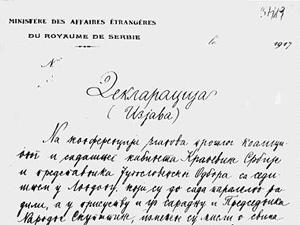 MINISTÈRE DES AFFAIRES ÉTRANGÈRES
DU ROYAUME DE SERBIE
le 1917
№
Декларација
(Изјава)
На конференцији чланова прошлог коалици
оног и садашњег кабинета Краљевине Србије
и представника Југословенског Одбора са седи
штем у Лондону, који су до сада паралелно ра
дили, а у присуству и сарадњи Председника
Народне Скупштине, измењене су мисли о свима